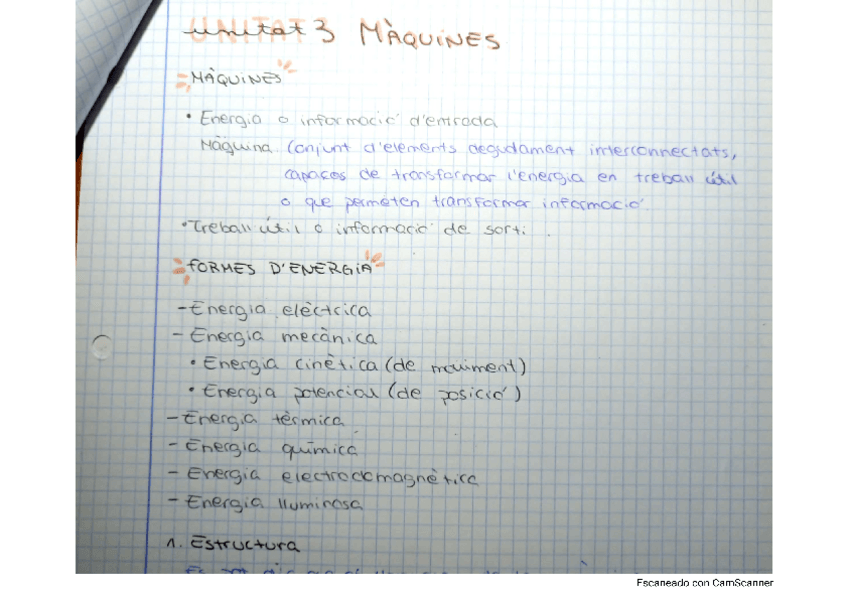 unitat 3 MÀQUINES
MÀQUINES
• Energia o informació d'entrada
Màquina (conjunt d'elements degudament interconnectats,
capaços de transformar l'energia en treball útil
o que permeten transformar informació.
• Treball útil o informació de sorti.
FORMES D'ENERGIA
- Energia elèctrica
- Energia mecànica
• Energia cinètica (de moviment)
• Energia potencial (de posició)
- Energia tèrmica
- Energia química
- Energia electrodomagnètica
- Energia lluminosa
1. Estructura
Escaneado con CamScanner